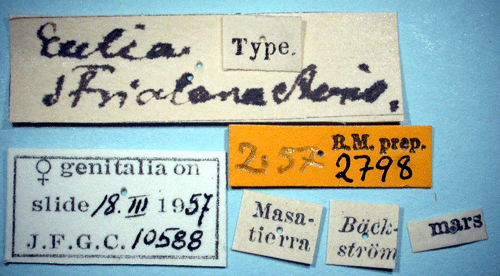 Eulia
Type.
strialana Auriv.
2.57 R.M. prep.
2798
♀ genitalia on
slide 18.III 1957
J.F.G.C. 10588
Masa-
tierra
Bäck-
ström
mars